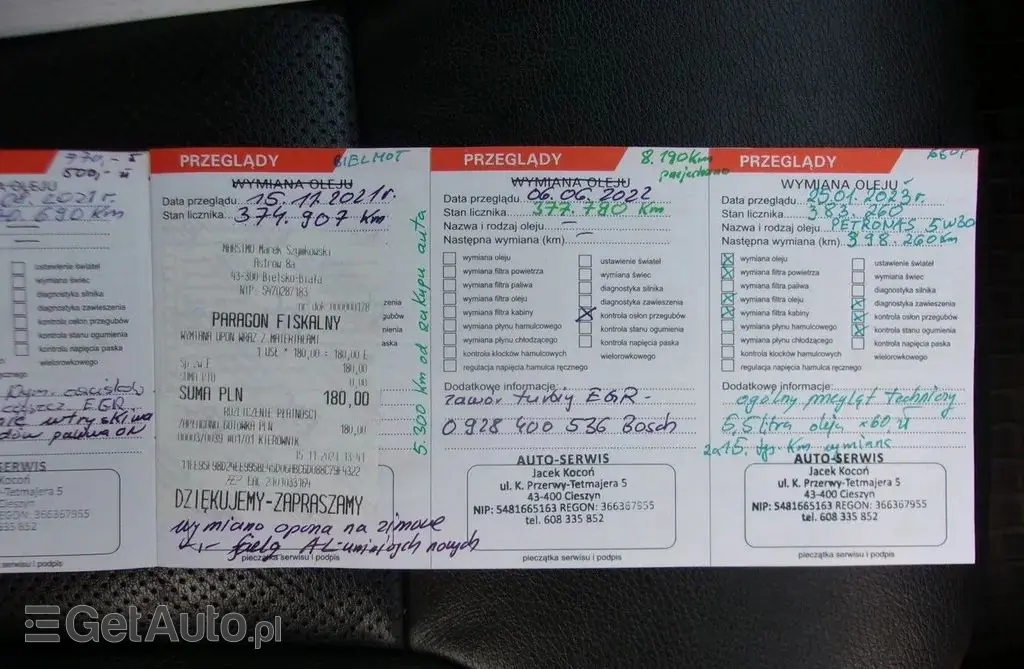 370,-
500,-
OLEJU
2021r.
690 km
ustawienie świateł
wymiana świec
diagnostyka silnika
diagnostyka zawieszenia
kontrola osłon przegubów
kontrola stanu ogumienia
kontrola napięcia paska
wielorowkowego
EGR
paliwa ON
SERWIS
Kocoń
Tetmajera 5
Cieszyn
REGON: 366367955
335 852
serwisu i podpis
PRZEGLĄDY
BIELMOT
WYMIANA OLEJU
Data przeglądu 15.11.2021r.
Stan licznika 374.907 km
MARSIMO Marek Szymkowski
Astrów 8a
43-300 Bielsko-Biała
NIP: 5470287183
nr dok.000000178
PARAGON FISKALNY
WYMIANA OPON WRAZ Z MATERIAŁAMI
1 USŁ * 180,00 = 180,00 E
Sp.zw.E 180,00
SUMA PTU 0,00
SUMA PLN 180,00
ROZLICZENIE PŁATNOŚCI
ZAPŁACONO GOTÓWKA PLN 180,00
000037/0039 #01/01 KIEROWNIK
15.11.2021 13:41
DZIĘKUJEMY-ZAPRASZAMY
wymiana opona na zimowe
felg AL-uminiojch nowych
pieczątka serwisu i podpis
5.300 km od zakupu auta
PRZEGLĄDY
8.190 km
przejechano
WYMIANA OLEJU
Data przeglądu 06.06.2022
Stan licznika 377.790 km
Nazwa i rodzaj oleju —
Następna wymiana (km) —
wymiana oleju
wymiana filtra powietrza
wymiana filtra paliwa
wymiana filtra oleju
wymiana filtra kabiny
wymiana płynu hamulcowego
wymiana płynu chłodzącego
kontrola klocków hamulcowych
regulacja napięcia hamulca ręcznego
ustawienie świateł
wymiana świec
diagnostyka silnika
diagnostyka zawieszenia
kontrola osłon przegubów
kontrola stanu ogumienia
kontrola napięcia paska
wielorowkowego
Dodatkowe informacje:
zawór turbiy EGR -
0 928 400 536 Bosch
AUTO-SERWIS
Jacek Kocoń
ul. K. Przerwy-Tetmajera 5
43-400 Cieszyn
NIP: 5481665163 REGON: 366367955
tel. 608 335 852
pieczątka serwisu i podpis
PRZEGLĄDY
WYMIANA OLEJU
Data przeglądu 25.01.2023r.
Stan licznika 383.260
Nazwa i rodzaj oleju PETRONAS 5W30
Następna wymiana (km) 398.260 km
wymiana oleju
wymiana filtra powietrza
wymiana filtra paliwa
wymiana filtra oleju
wymiana filtra kabiny
wymiana płynu hamulcowego
wymiana płynu chłodzącego
kontrola klocków hamulcowych
regulacja napięcia hamulca ręcznego
ustawienie świateł
wymiana świec
diagnostyka silnika
diagnostyka zawieszenia
kontrola osłon przegubów
kontrola stanu ogumienia
kontrola napięcia paska
wielorowkowego
Dodatkowe informacje:
ogólny przegląt techniczny
6,5 litra oleju x60 zł
za 15. tys. km wymiana
AUTO-SERWIS
Jacek Kocoń
ul. K. Przerwy-Tetmajera 5
43-400 Cieszyn
NIP: 5481665163 REGON: 366367955
tel. 608 335 852
pieczątka serwisu i podpis
GetAuto.pl